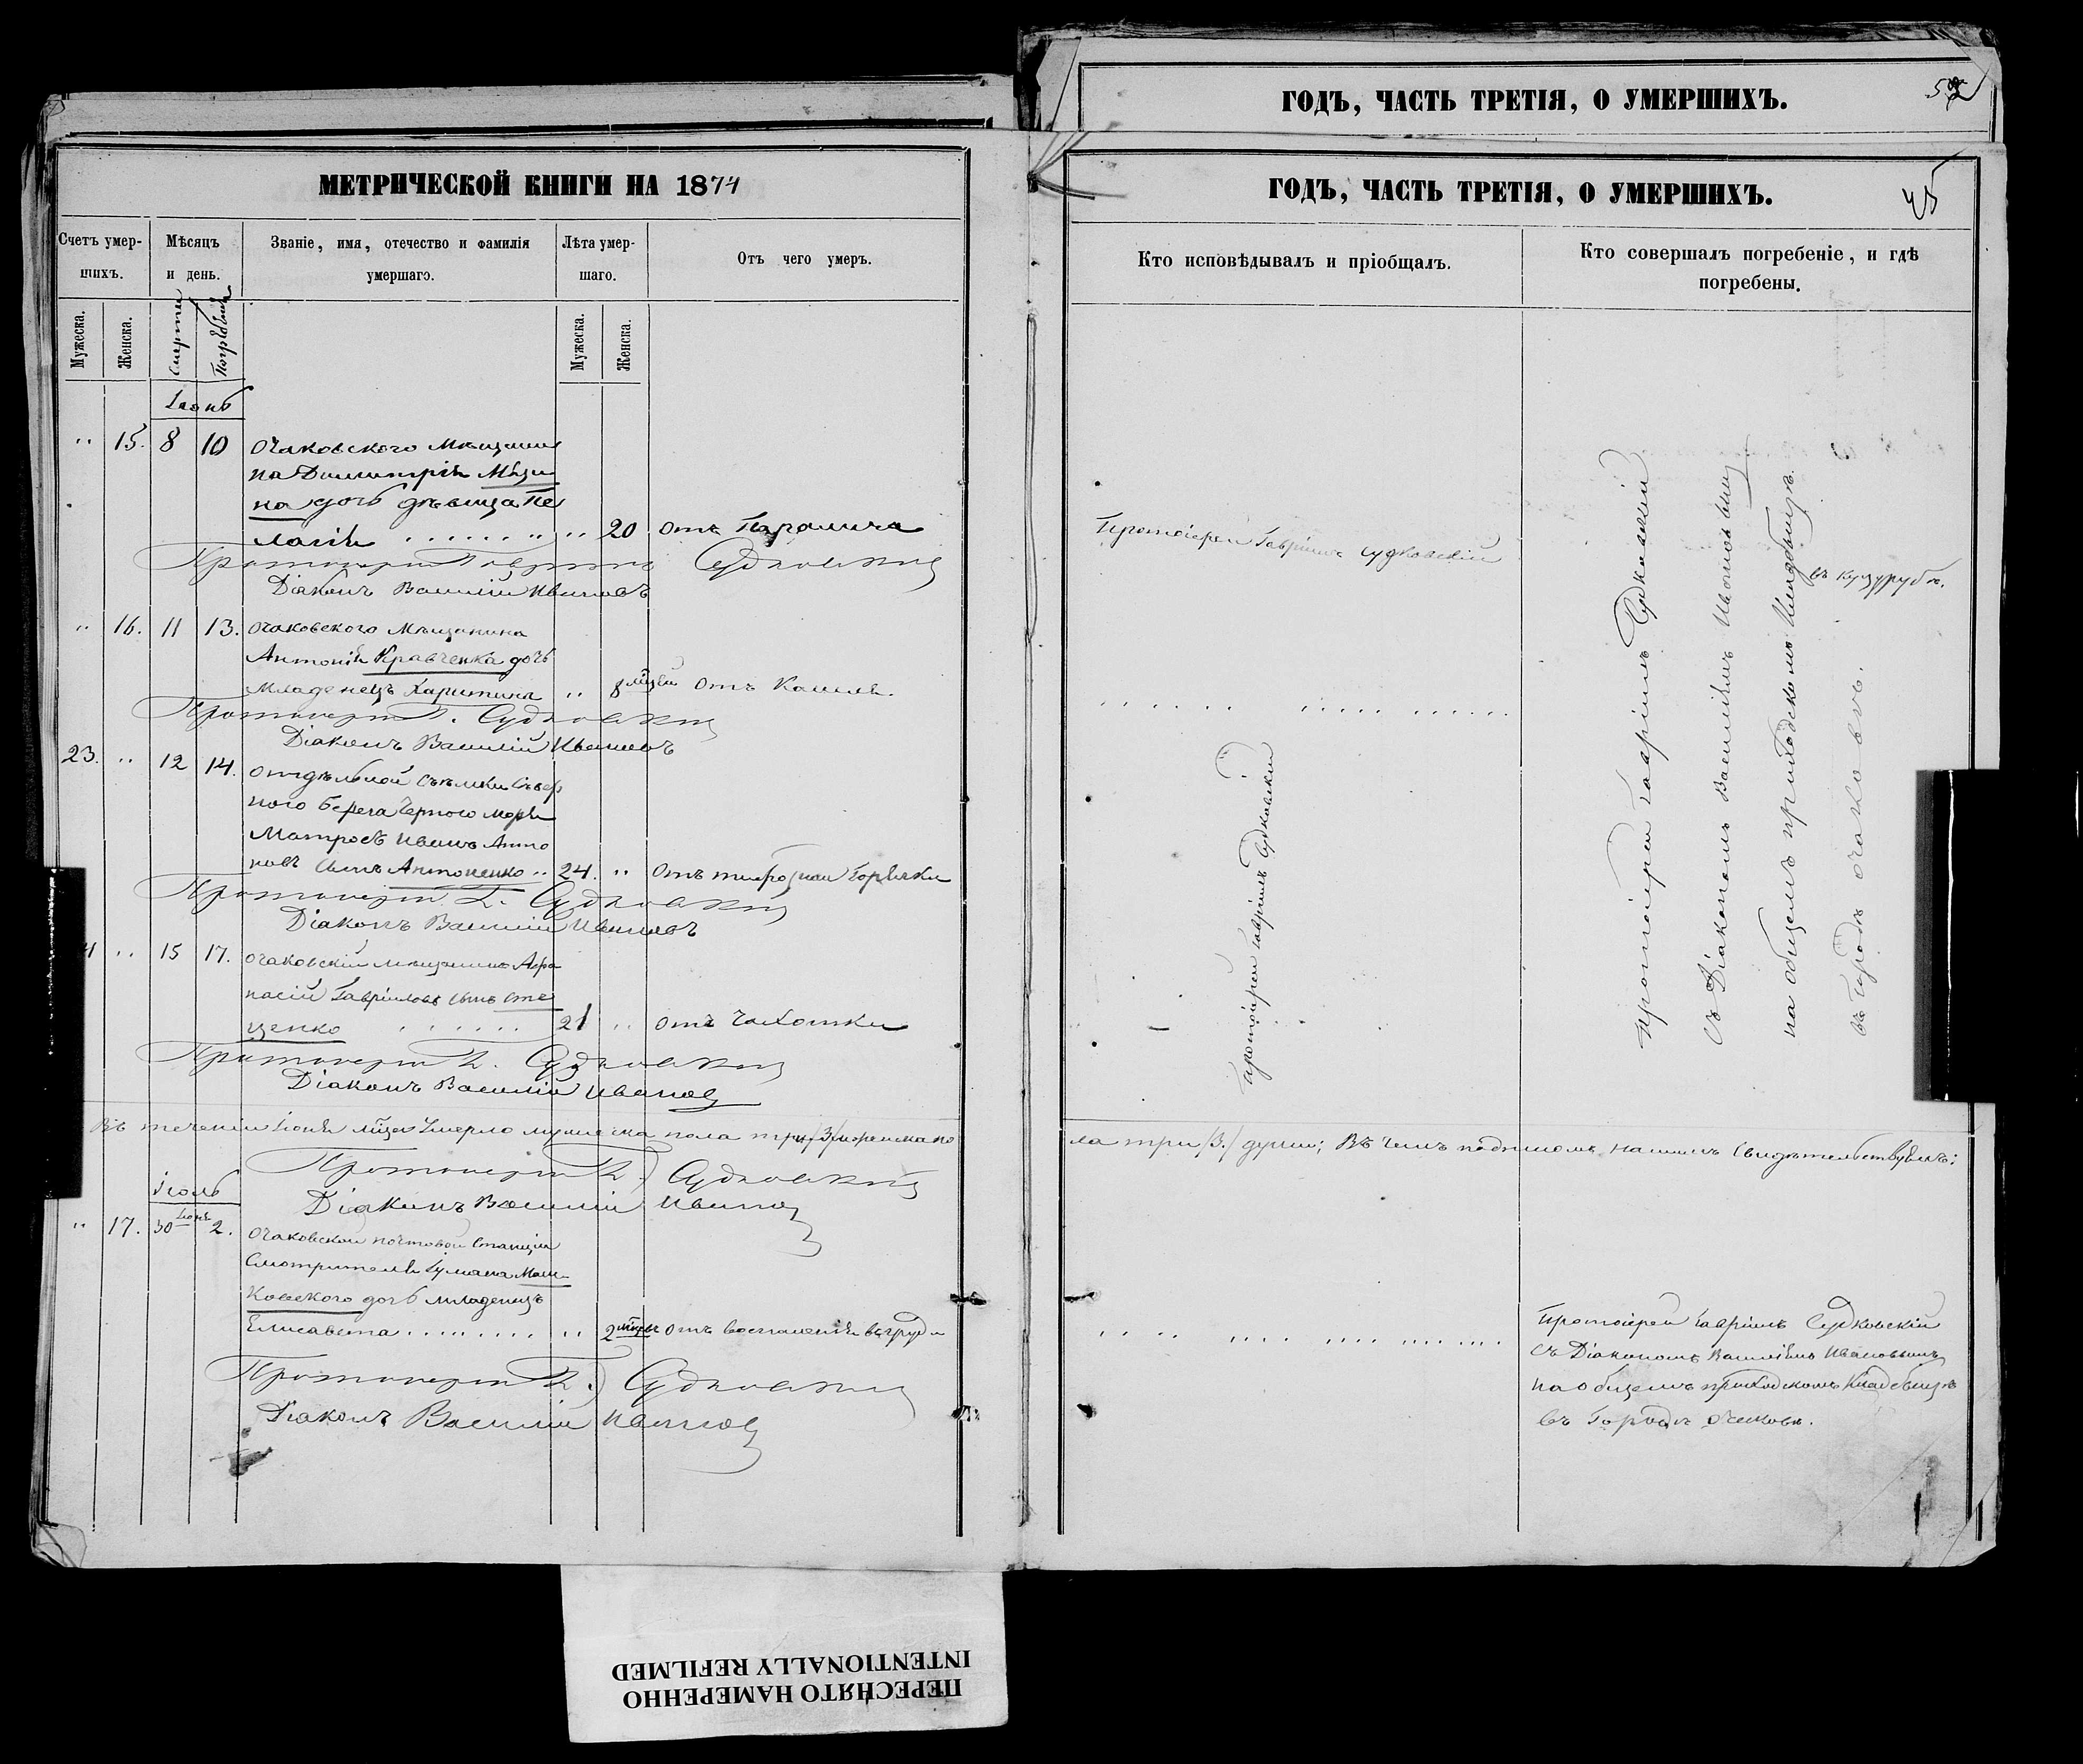 ГОДЪ, ЧАСТЬ ТРЕТІЯ, О УМЕРШИХЪ.
МЕТРИЧЕСКОЙ КНИГИ НА 1874
Счетъ умер-
шихъ.
Мѣсяцъ
и день.
Званіе, имя, отечество и фамилія
умершаго.
Лѣта умер-
шаго.
Отъ чего умеръ.
Мужеска.
Женска.
Смерти
Погребенія
Мужеска.
Женска.
Іюнь
" 15. 8 10 Очаковскаго Мѣщани
на Димитрія Мѣци
на дочь дѣвица Пе
лагія . . . . . . " " 20 отъ Паралича
Протоіерей Гавріилъ Судковскій
Діаконъ Василій Ивановъ
" 16. 11 13. Очаковского Мѣщанина
Антонія Кравченка дочь
Младенецъ Харитина " 8 мѣсяц отъ Кашля.
Протоіерей Г. Судковскій
Діаконъ Василій Ивановъ
23. " 12 14. Отдѣльной съемки Сѣвер
ного берега Чернаго моря
Матросъ Иванъ Анто
новъ Сынъ Антоненко " 24. " Отъ тифозной Горячки
Протоіерей Г. Судковскій
Діаконъ Василій Ивановъ
" 15 17. Очаковскій мѣщанинъ Афа
насій Гавріиловъ сынъ Сте
ценко . . . . . . 21 " отъ Чахотки
Протоіерей Г. Судковскій
Діаконъ Василій Ивановъ
Въ теченіи Іюня мѣсяца Умерло мужеска пола три /3/ и женска по
Протоіерей Г. Судковскій
Діаконъ Василій Ивановъ
Іюль
" 17. 30 Іюня 2. Очаковской почтовой Станціи
Смотрителя Гумана Маш
ковского дочь младенецъ
Елисавета . . . . . . . . . " 2 мѣсяц отъ воспаленія въ груди
Протоіерей Г. Судковскій
Діаконъ Василій Ивановъ
57
ГОДЪ, ЧАСТЬ ТРЕТІЯ, О УМЕРШИХЪ.
45
Кто исповѣдывалъ и пріобщалъ.
Кто совершалъ погребеніе, и гдѣ
погребены.
Протоіерей Гавріилъ Судковскій
Протоіерей Гавріилъ Судковскій
Протоіерей Гавріилъ Судковскій
съ Діакономъ Василіемъ Ивановымъ
на общемъ приходскомъ Кладбищѣ
въ городѣ Очаковѣ.
въ Куцурубѣ.
ла три /3./ души; Въ чемъ подписомъ нашимъ Свидѣтельствуемъ:
Протоіерей Гавріилъ Судковскій
съ Діакономъ Василіемъ Ивановымъ
на общемъ приходскомъ Кладбищѣ
въ Городѣ Очаковѣ.
ПЕРЕСНЯТО НАМЕРЕННО
INTENTIONALLY REFILMED